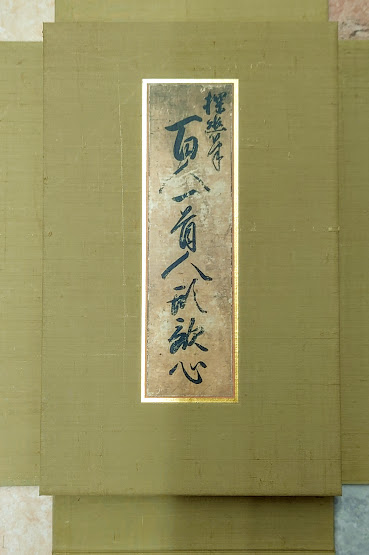 探幽筆
百人一首人形歌心